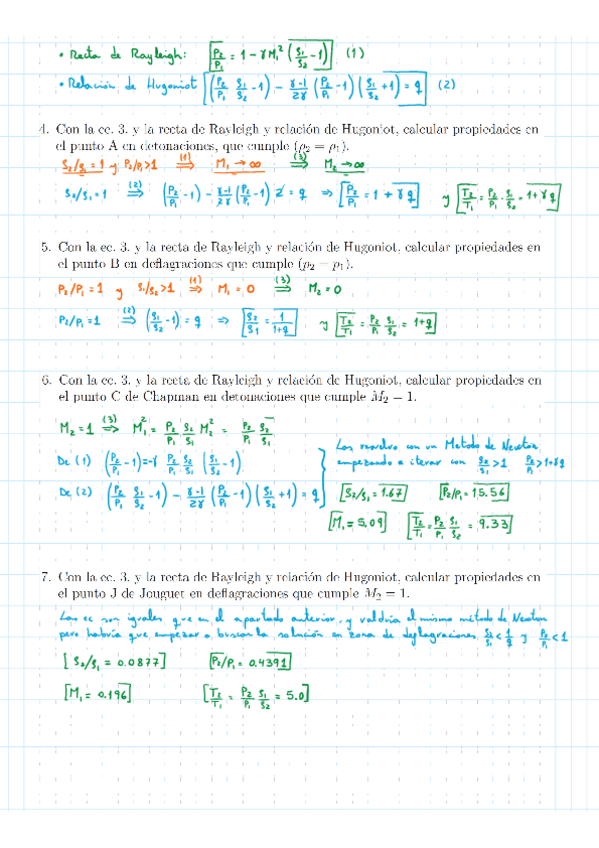 • Recta de Rayleigh: P₂/P₁ = 1 - γM₁² (S₁/S₂ - 1) (1)
• Relación de Hugoniot (P₂/P₁ S₁/S₂ - 1) - γ-1/2γ (P₂/P₁ - 1)(S₁/S₂ + 1) = q (2)
4. Con la ec. 3. y la recta de Rayleigh y relación de Hugoniot, calcular propiedades en
el punto A en detonaciones, que cumple (ρ₂ = ρ₁).
S₂/S₁ = 1 y P₂/P₁ > 1 (1)⇒ M₁ → ∞ (3)⇒ M₂ → ∞
S₂/S₁ = 1 (2)⇒ (P₂/P₁ - 1) - γ-1/2γ (P₂/P₁ - 1) 2 = q ⇒ P₂/P₁ = 1 + γq y T₂/T₁ = P₂/P₁ · S₁/S₂ = 1 + γq
5. Con la ec. 3. y la recta de Rayleigh y relación de Hugoniot, calcular propiedades en
el punto B en deflagraciones que cumple (p₂ = p₁).
P₂/P₁ = 1 y S₁/S₂ > 1 (1)⇒ M₁ = 0 (3)⇒ M₂ = 0
P₂/P₁ = 1 (2)⇒ (S₁/S₂ - 1) = q ⇒ S₂/S₁ = 1/1+q y T₂/T₁ = P₂/P₁ S₁/S₂ = 1+q
6. Con la ec. 3. y la recta de Rayleigh y relación de Hugoniot, calcular propiedades en
el punto C de Chapman en detonaciones que cumple M₂ = 1.
M₂ = 1 (3)⇒ M₁² = P₂/P₁ S₂/S₁ M₂² = P₂/P₁ S₂/S₁
De (1) (P₂/P₁ - 1) = -γ P₂/P₁ S₂/S₁ (S₁/S₂ - 1)
De (2) (P₂/P₁ S₁/S₂ - 1) - γ-1/2γ (P₂/P₁ - 1)(S₁/S₂ + 1) = q
Las resuelvo con un Metodo de Newton
empezando a iterar con S₂/S₁ > 1 P₂/P₁ > 1+γq
S₂/S₁ = 1.67 P₂/P₁ = 15.56
M₁ = 5.09 T₂/T₁ = P₂/P₁ S₁/S₂ = 9.33
7. Con la ec. 3. y la recta de Rayleigh y relación de Hugoniot, calcular propiedades en
el punto J de Jouguet en deflagraciones que cumple M₂ = 1.
Las ec son iguales que en el apartado anterior, y valdria el mismo método de Newton
pero habría que empezar a buscar la solución en zona de deflagraciones S₂/S₁ < 1/q y P₂/P₁ < 1
S₂/S₁ = 0.0877 P₂/P₁ = 0.4391
M₁ = 0.196 T₂/T₁ = P₂/P₁ S₁/S₂ = 5.0